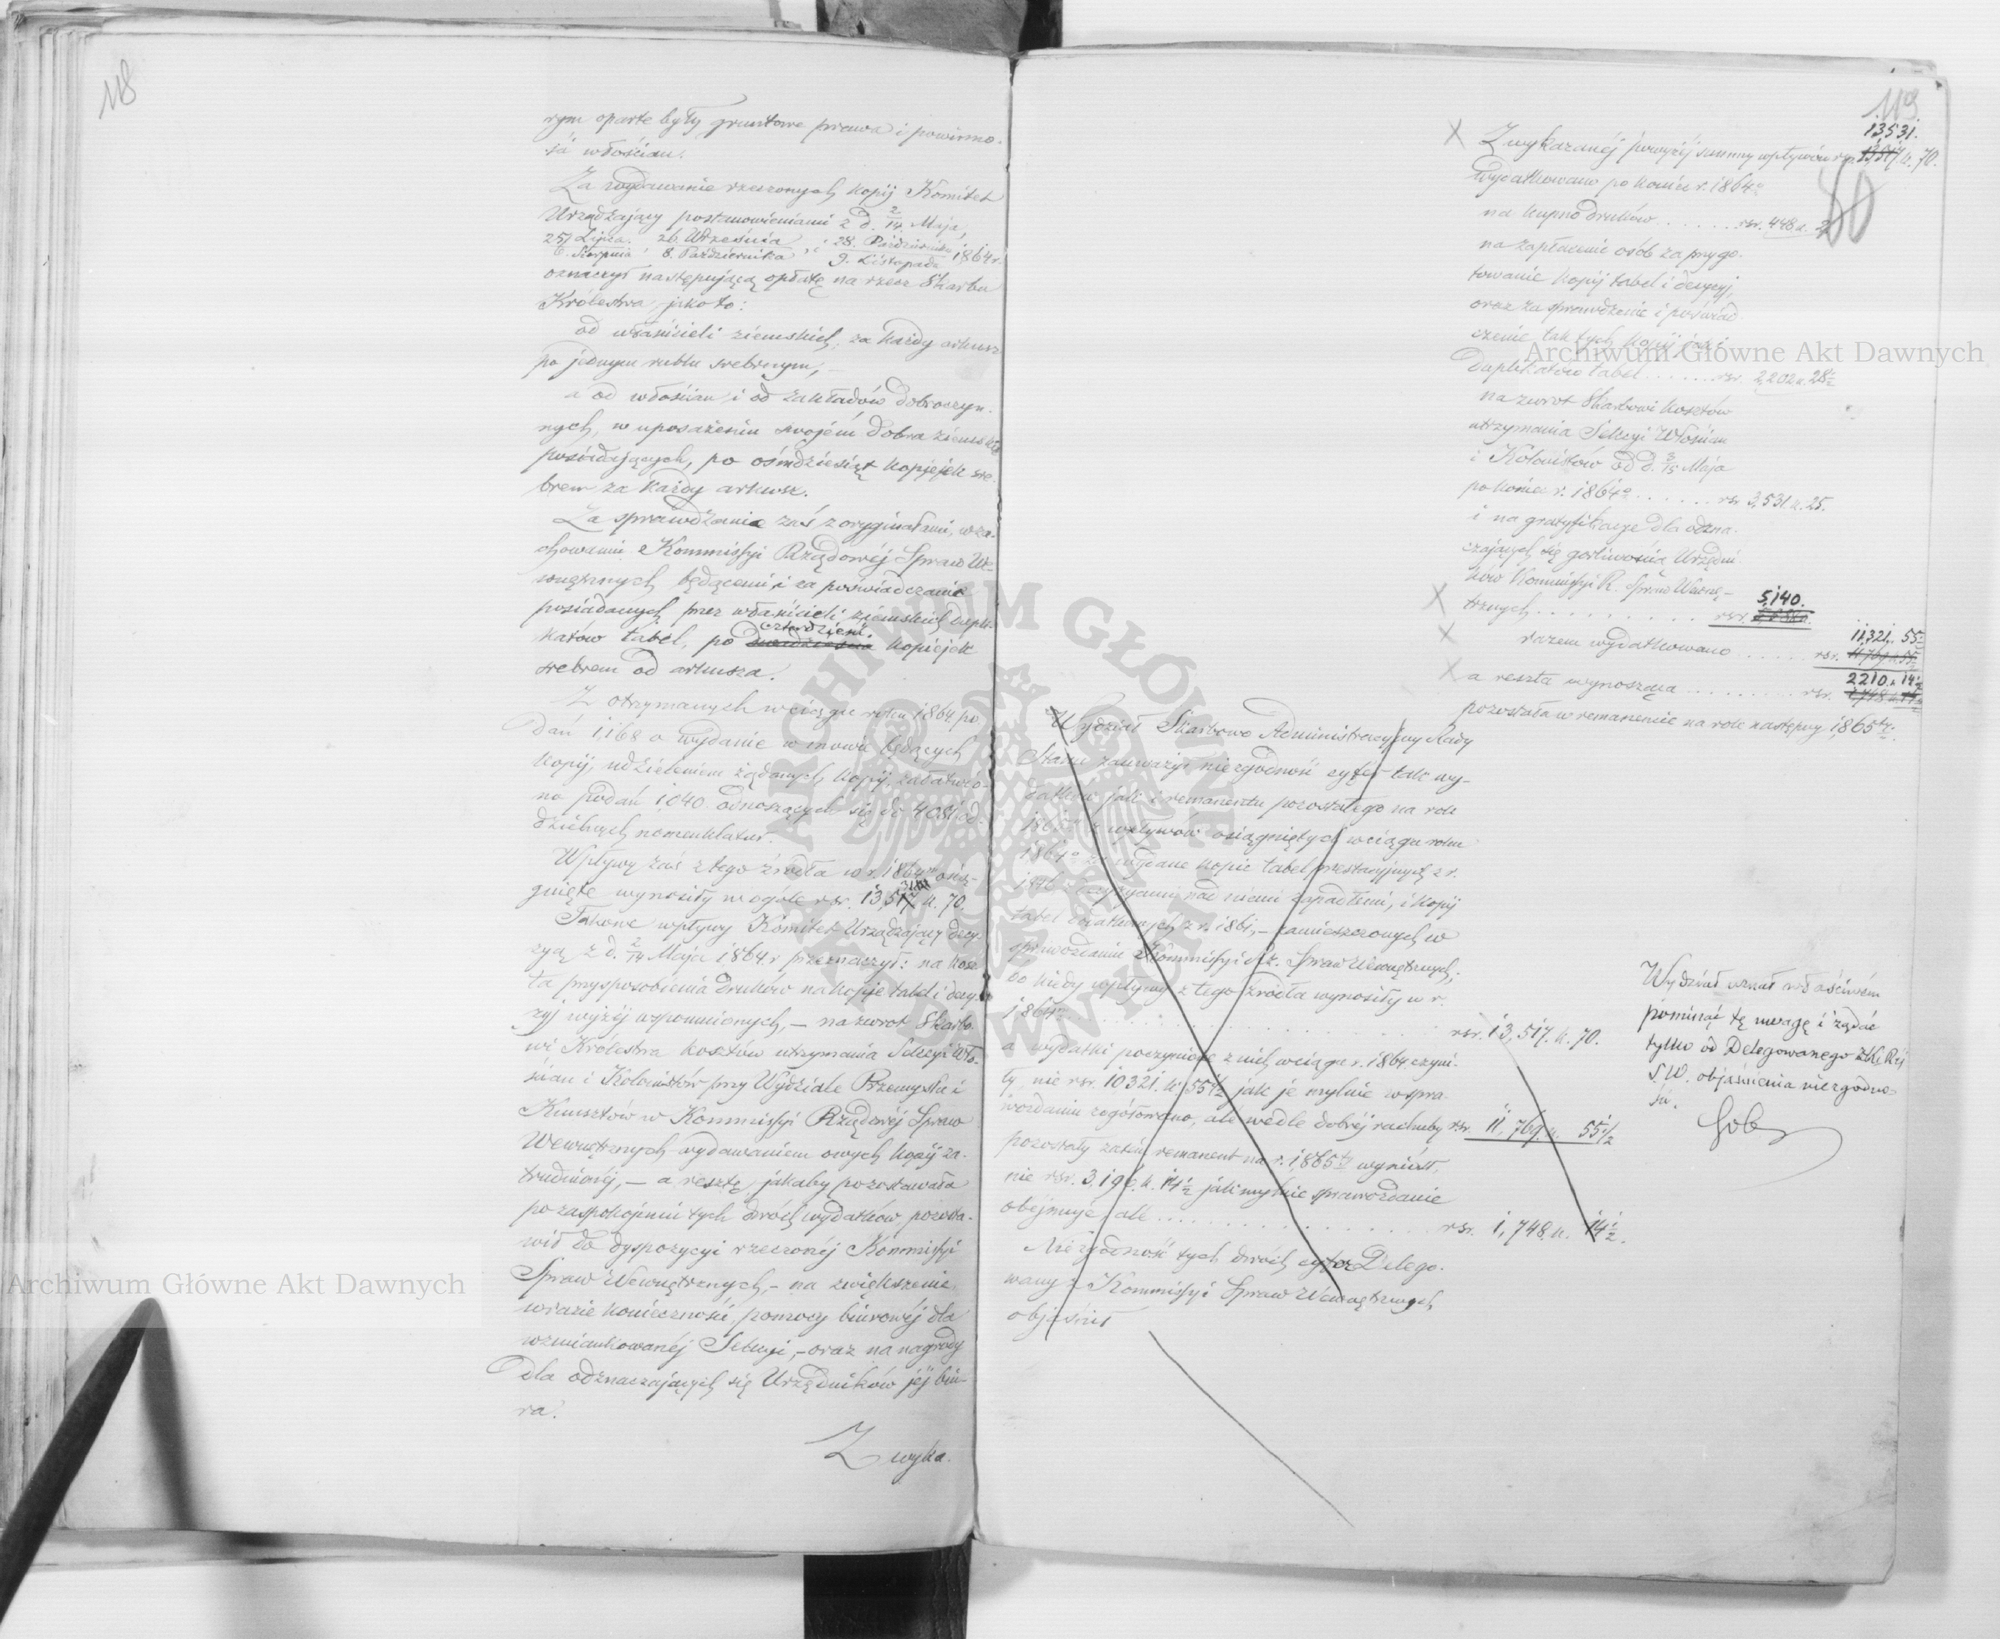 118
rym oparte były gruntowe prawa i powinno-
ści włościan.
Za wydawanie rzeczonych kopij Komitet
Urządzający postanowieniami z d. 2/14 Maja,
25 Lipca/6 Sierpnia, 26 Września/8 Października, i 28 Października/9 Listopada 1864 r.
oznaczył następującą opłatę na rzecz Skarbu
Królestwa, jako to:
od właścicieli ziemskich, za każdy arkusz
po jednym rublu srebrnym, –
a od włościan i od zakładów dobroczyn-
nych, w uposażeniu swojém dobra ziemskie
posiadających, po ośmdziesiąt kopiejek sre-
brem za każdy arkusz.
Za sprawdzenia zaś z oryginałami, w za-
chowaniu Kommissyi Rządowéj Spraw We-
wnętrznych będącemi i za poświadczanie
posiadanych przez właścicieli ziemskich dupli-
czterdzieści
katów tabel, po kopiejek
srebrem od arkusza.
Z otrzymanych w ciągu roku 1864 po
dań 1168 o wydanie w mowie będących
kopij, udzieleniem żądanych kopij, załatwio-
no podań 1040 odnoszących się do 4081 od-
dzielnych nomenklatur.
Wpływy zaś z tego źródła w r. 1864 osią-
31
gnięte wynosiły w ogóle rsr. 13,517 k. 70.
Takowe wpływy Komitet Urządzający decy-
zyą z d. 2/14 Maja 1864 r. przeznaczył: na kosz
ta przysposobienia druków na kopije tabel i decy-
zyj wyżéj wspomnionych, – na zwrot Skarbo-
wi Królestwa kosztów utrzymania Sekcyi Wło-
ścian i Kolonistów przy Wydziale Przemysłu i
Kunsztów w Kommissyi Rządowéj Spraw
Wewnętrznych wydawaniem owych kopij za-
trudnionéj, – a resztę, jakaby pozostawała
po zaspokojeniu tych dwóch wydatków, pozosta-
wił do dyspozycyi rzeczonéj Kommissyi
Spraw Wewnętrznych, – na zwiększenie,
w razie konieczności, pomocy biurowéj dla
wzmiankowanéj Sekcyi, – oraz na nagrody
dla odznaczających się Urzędników jéj biu-
ra.
Z wyka-
119.
13,531.
X Z wykazanéj powyżéj summy wpływów rsr. 13,517 k. 70.
wydatkowano po koniec r. 1864go
na kupno druków . . . . . . rsr. 448 k. 2
60
na zapłacenie osób za przygo-
towanie kopij tabel i decyzyj,
oraz za sprawdzenie i poświad
czenie tak tych kopij jak i
duplikatów tabel . . . . . . rsr. 2,202 k. 28½
na zwrot Skarbowi kosztów
utrzymania Sekcyi Włościan
i Kolonistów od d. 3/15 Maja
po koniec r. 1864go . . . . . . rsr 3,531 k. 25.
i na gratyfikacye dla odzna-
czających się gorliwością Urzędni
ków Kommissyi R. Spraw Wewnę-
5,140.
X trznych . . . . . . . rsr.
11,321. 55½
X razem wydatkowano . . . . . rsr. 11,769 k. 55½
2210 k. 14½
X a reszta wynosząca . . . . . . . . rsr. 1,748 k. 14½
pozostała w remanencie na rok następny 1865ty.
Wydział Skarbowo Administracyjny Rady
Stanu zauważył niezgodność cyfer tak wy-
datków jak i remanentu pozostałego na rok
1865ty z wpływów osiągniętych w ciągu roku
1864go za wydane kopie tabel prestacyjnych z r.
1846 z decyzyami nad niemi zapadłemi, i kopij
tabel dodatkowych z r. 1861, – zamieszczonych w
sprawozdaniu Kommissyi Rz. Spraw Wewnętrznych;
bo kiedy wpływy z tego źródła wynosiły w r.
1864ym . . . . . . . . . . . . . . . . rsr. 13,517. k. 70.
a wydatki poczynione z nich w ciągu r. 1864 czyni-
ły, nie rsr. 10321. k. 55½ jak je mylnie w spra-
wozdaniu zogółowano, ale wedle dobréj rachuby rsr. 11,769. k. 55½
pozostały zatém remanent na r. 1865ty wyniósł,
nie rsr. 3,196. k. 14½ jak mylnie sprawozdanie
obejmuje, ale . . . . . . . . . . . . . . . rsr. 1,748. k. 14½.
Niezgodność tych dwóch cyfer Delego-
wany z Kommissyi Spraw Wewnętrznych
objaśnił
Wydział uznał właściwém
pominąć tę uwagę i żądać
tylko od Delegowanego z K. Rz.
S. W. objaśnienia niezgodno-
ści.
Archiwum Główne Akt Dawnych
Archiwum Główne Akt Dawnych
ARCHIWUM GŁÓWNE AKT DAWNYCH